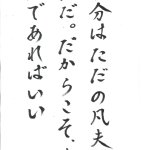 分はただの凡夫
だ。だからこそ、
であればいい